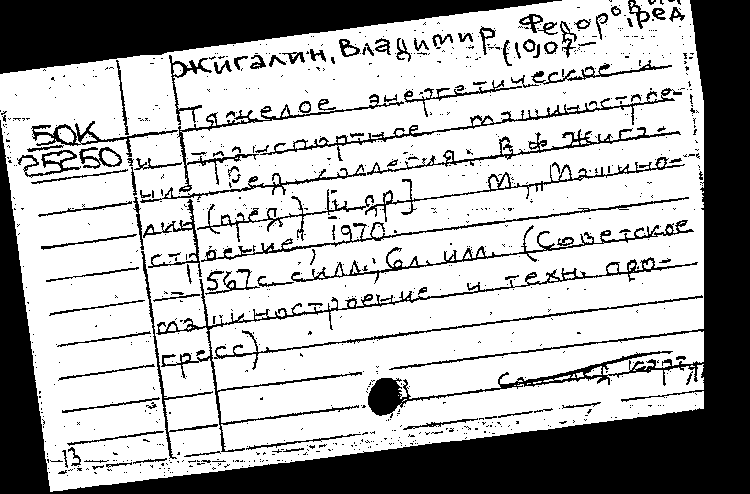 Жигалин, Владимир Федорович
(1907– пред
Тяжелое энергетическое и
50К
25250
и транспортное машинострое-
ние. Ред. коллегия: В.Ф. Жига-
лин (пред.) [и др.] М., „Машино-
строение", 1970.
567 с. с илл.; 6 л. илл. (Советское
машиностроение и техн. про-
гресс).
карт
13